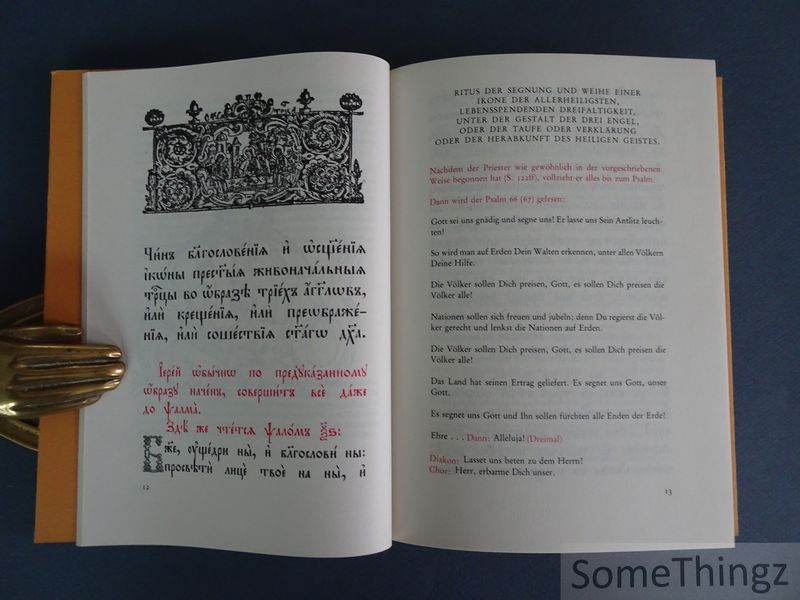 Чи́нъ бл҃гослове́нїѧ и҆ ѡ҆сщ҃е́нїѧ
і҆кѡ́ны прест҃ы́ѧ живонача́льныѧ
трⷪ҇цы во ѡ҆́бразѣ трїе́хъ а҆́гг҃лѡвъ,
и҆лѝ креще́нїѧ, и҆лѝ преѡбраже́-
нїѧ, и҆лѝ соше́ствїѧ ст҃а́гѡ дх҃а.
І҆ере́й ѡ҆бы́чнѡ по предꙋка́занномꙋ
ѡ҆́бразꙋ наче́нъ, соверши́тъ всѐ да́же
до ѱалма̀.
Здѣ́ же чте́тсѧ ѱало́мъ ѯ҃ѕ:
Бж҃е, ᲂу҆ще́дри ны̀, и҆ бл҃гословѝ ны̀:
просвѣтѝ лицѐ твоѐ на ны̀, и҆
12
RITUS DER SEGNUNG UND WEIHE EINER
IKONE DER ALLERHEILIGSTEN,
LEBENSSPENDENDEN DREIFALTIGKEIT,
UNTER DER GESTALT DER DREI ENGEL,
ODER DER TAUFE ODER VERKLÄRUNG
ODER DER HERABKUNFT DES HEILIGEN GEISTES.
Nachdem der Priester wie gewöhnlich in der vorgeschriebenen
Weise begonnen hat (S. 122ff), vollzieht er alles bis zum Psalm.
Dann wird der Psalm 66 (67) gelesen:
Gott sei uns gnädig und segne uns! Er lasse uns Sein Antlitz leuch-
ten!
So wird man auf Erden Dein Walten erkennen, unter allen Völkern
Deine Hilfe.
Die Völker sollen Dich preisen, Gott, es sollen Dich preisen die
Völker alle!
Nationen sollen sich freuen und jubeln; denn Du regierst die Völ-
ker gerecht und lenkst die Nationen auf Erden.
Die Völker sollen Dich preisen, Gott, es sollen Dich preisen die
Völker alle!
Das Land hat seinen Ertrag geliefert. Es segnet uns Gott, unser
Gott.
Es segnet uns Gott und Ihn sollen fürchten alle Enden der Erde!
Ehre . . . Dann: Alleluja! (Dreimal)
Diakon: Lasset uns beten zu dem Herrn!
Chor: Herr, erbarme Dich unser.
13
SomeThingz